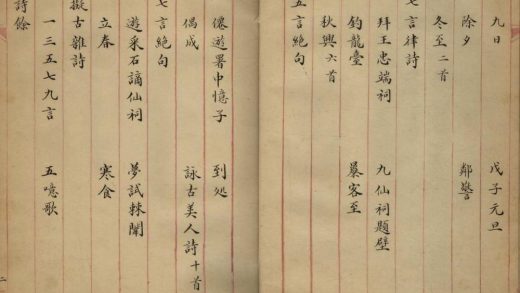 九日 戊子元旦
除夕 鄰警
冬至二首
七言律詩
拜王忠端祠 九仙祠題壁
釣龍臺 暮客至
秋興六首
五言絕句
僊遊署中憶子 到処
偶成 詠古美人詩十首
七言絕句
遊采石謫仙祠 夢試棘闈
立春 寒食
擬古雜詩
一三五七九言 五噫歌
詩餘
二